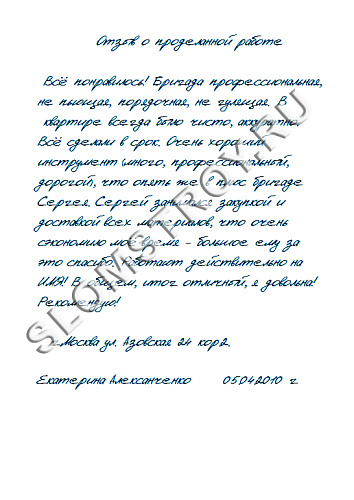 Отзыв о проделанной работе
Всё понравилось! Бригада профессиональная,
не пьющая, порядочная, не гулящая. В
квартире всегда было чисто, аккуратно.
Всё сделали в срок. Очень хороший
инструмент (много, профессиональный,
дорогой), что опять же в плюс бригаде
Сергея. Сергей занимался закупкой и
доставкой всех материалов, что очень
сэкономило моё время - большое ему за
это спасибо. Работают действительно на
ИМЯ! В общем, итог отличный, я довольна!
Рекомендую!
г.Москва ул. Азовская 24 кор2.
Екатерина Алексанченко 05.04.2010 г.
SLOMSTROY.RU